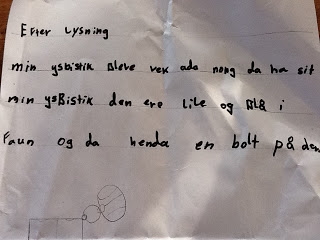 Efter Lysning
min ysbistik Bleve vek ada nong da ha sit
min ysBistik den ere lile og Blå i
Faun og da henda en bolt på den